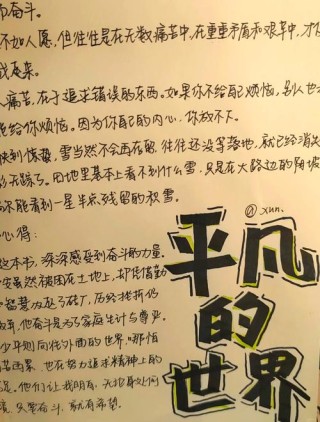 而奋斗。
不如人愿,但往往是在无数痛苦中,在重重矛盾和艰辛中,才
成熟起来。
人痛苦,在于追求错误的东西。如果你不给自己烦恼,别人也
能给你烦恼,因为你自己的内心,你放不下。
快到惊蛰,雪当然不会再存留,往往还没等落地,就已经消失
无踪了。
里基本上看不到什么雪,只是在大路边的阴坡
能看到一星半点残留的积雪。
心得:
这本书,深深感受到奋斗的力量。
安虽然被困在土地上,却凭借勤
智慧办起了砖厂,历经挫折仍
弃,他奋斗是为了家庭生计与尊严。
少平则向往外面的世界,哪怕
苦西累,也在努力追求精神上的
足。他们让我明白,无论身处何
境,只要奋斗,就有希望。
@xun.
平凡
的
世界